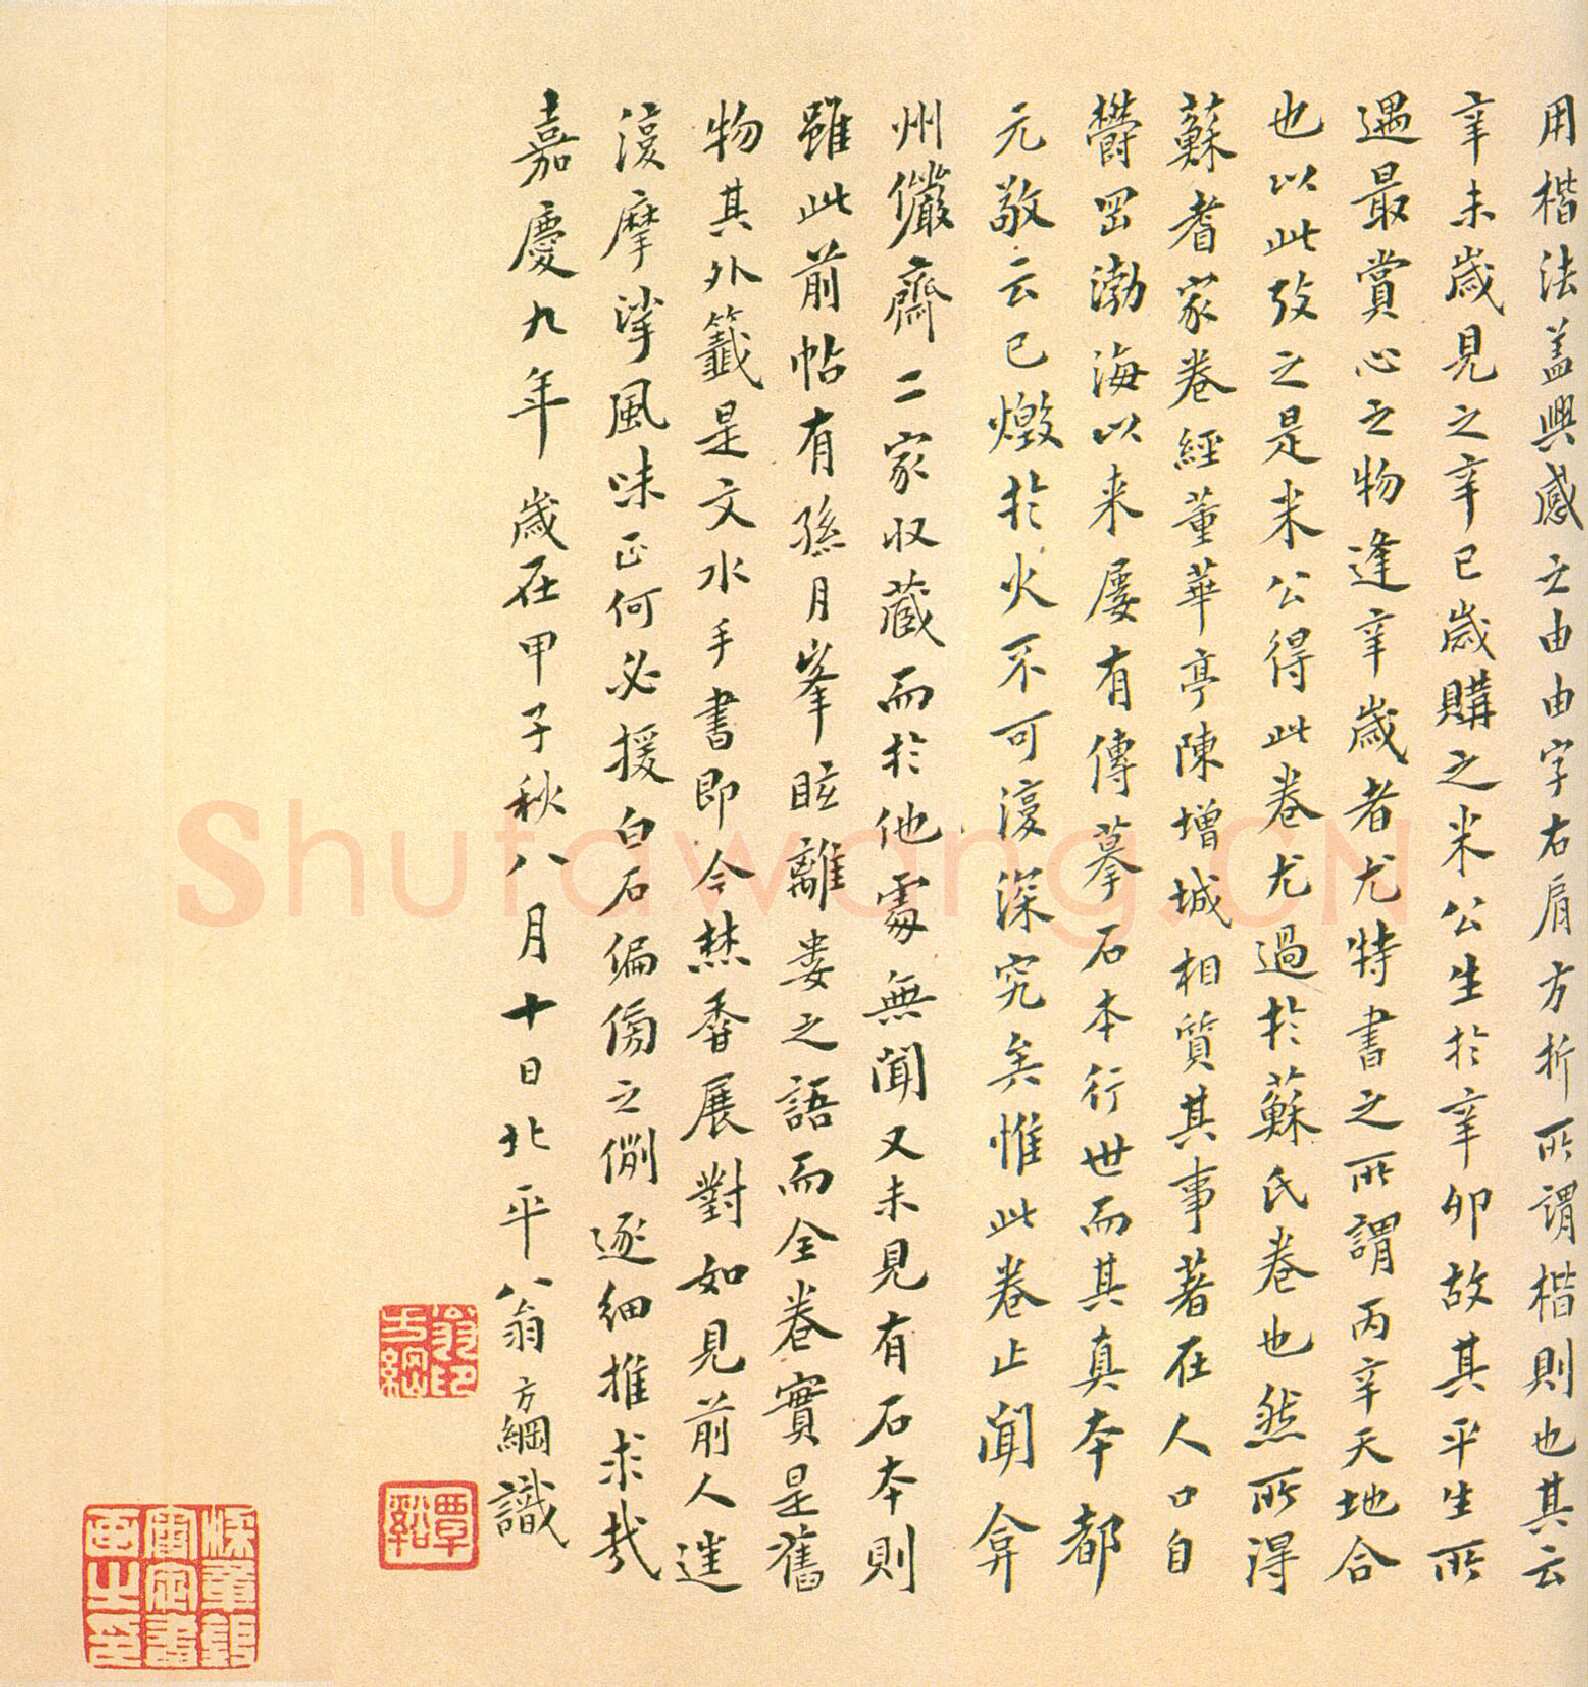 用楷法盖興感之由由字右肩方折所謂楷則也其云
辛未歲見之辛巳歲購之米公生於辛卯故其平生所
遇最賞心之物逢辛歲者尤特書之所謂丙辛天地合
也以此攷之是米公得此卷尤過於蘇氏卷也然所得
蘇耆家卷經董華亭陳增城相質其事著在人口自
欝岡渤海以来屢有傳摹石本行世而其真本都
元敬云已燬於火不可復深究矣惟此卷止聞弇
州儼齋二家收蔵而於他處無聞又未見有石本則
雖此前帖有孫月峯眩離婁之語而全卷實是舊
物其外籤是文水手書即今焚香展對如見前人進
復摩挲風味正何必援白石偏傍之例逐細推求哉
嘉慶九年歲在甲子秋八月十日北平翁方綱識
翁方綱印
覃谿
shufawang.CN